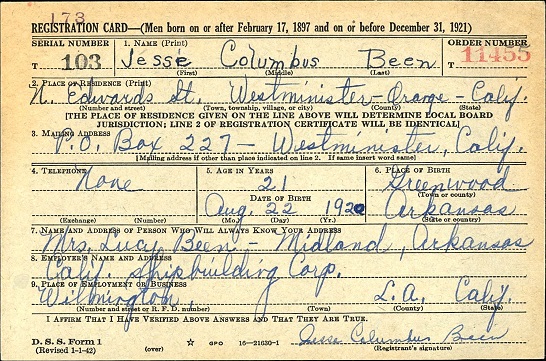 173
REGISTRATION CARD—(Men born on or after February 17, 1897 and on or before December 31, 1921)
SERIAL NUMBER 1. NAME (Print) ORDER NUMBER
T 103 Jesse Columbus Been T 11455
(First) (Middle) (Last)
2. PLACE OF RESIDENCE (Print)
N. Edwards St. Westminister - Orange - Calif.
(Number and street) (Town, township, village, or city) (County) (State)
[THE PLACE OF RESIDENCE GIVEN ON THE LINE ABOVE WILL DETERMINE LOCAL BOARD
JURISDICTION; LINE 2 OF REGISTRATION CERTIFICATE WILL BE IDENTICAL]
3. MAILING ADDRESS
P.O. Box 227 - Westminister, Calif.
[Mailing address if other than place indicated on line 2. If same insert word same]
4. TELEPHONE 5. AGE IN YEARS 6. PLACE OF BIRTH
None 21 Greenwood
DATE OF BIRTH (Town or county)
Aug. 22 1920 Arkansas
(Exchange) (Number) (Mo.) (Day) (Yr.) (State or country)
7. NAME AND ADDRESS OF PERSON WHO WILL ALWAYS KNOW YOUR ADDRESS
Mrs. Lucy Been - Midland, Arkansas
8. EMPLOYER'S NAME AND ADDRESS
Calif. Shipbuilding Corp.
9. PLACE OF EMPLOYMENT OR BUSINESS
Wilmington, L.A. Calif.
(Number and street or R. F. D. number) (Town) (County) (State)
I AFFIRM THAT I HAVE VERIFIED ABOVE ANSWERS AND THAT THEY ARE TRUE.
D. S. S. Form 1 GPO 16—21630-1 Jesse Columbus Been
(Revised 1-1-42) (over) (Registrant's signature)